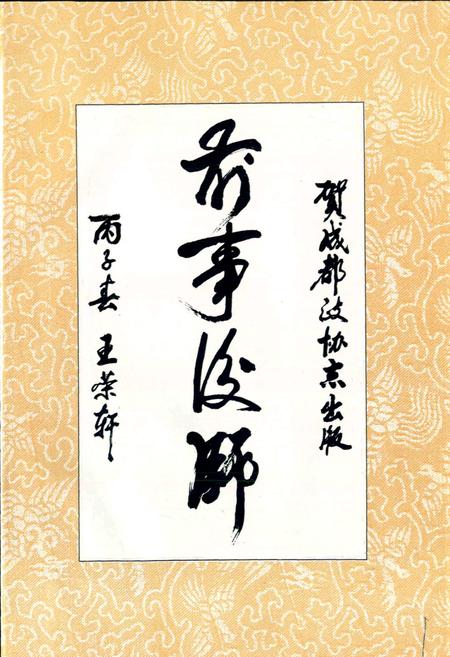 贺成都政协志出版
前事后师
丙子春 王荣轩